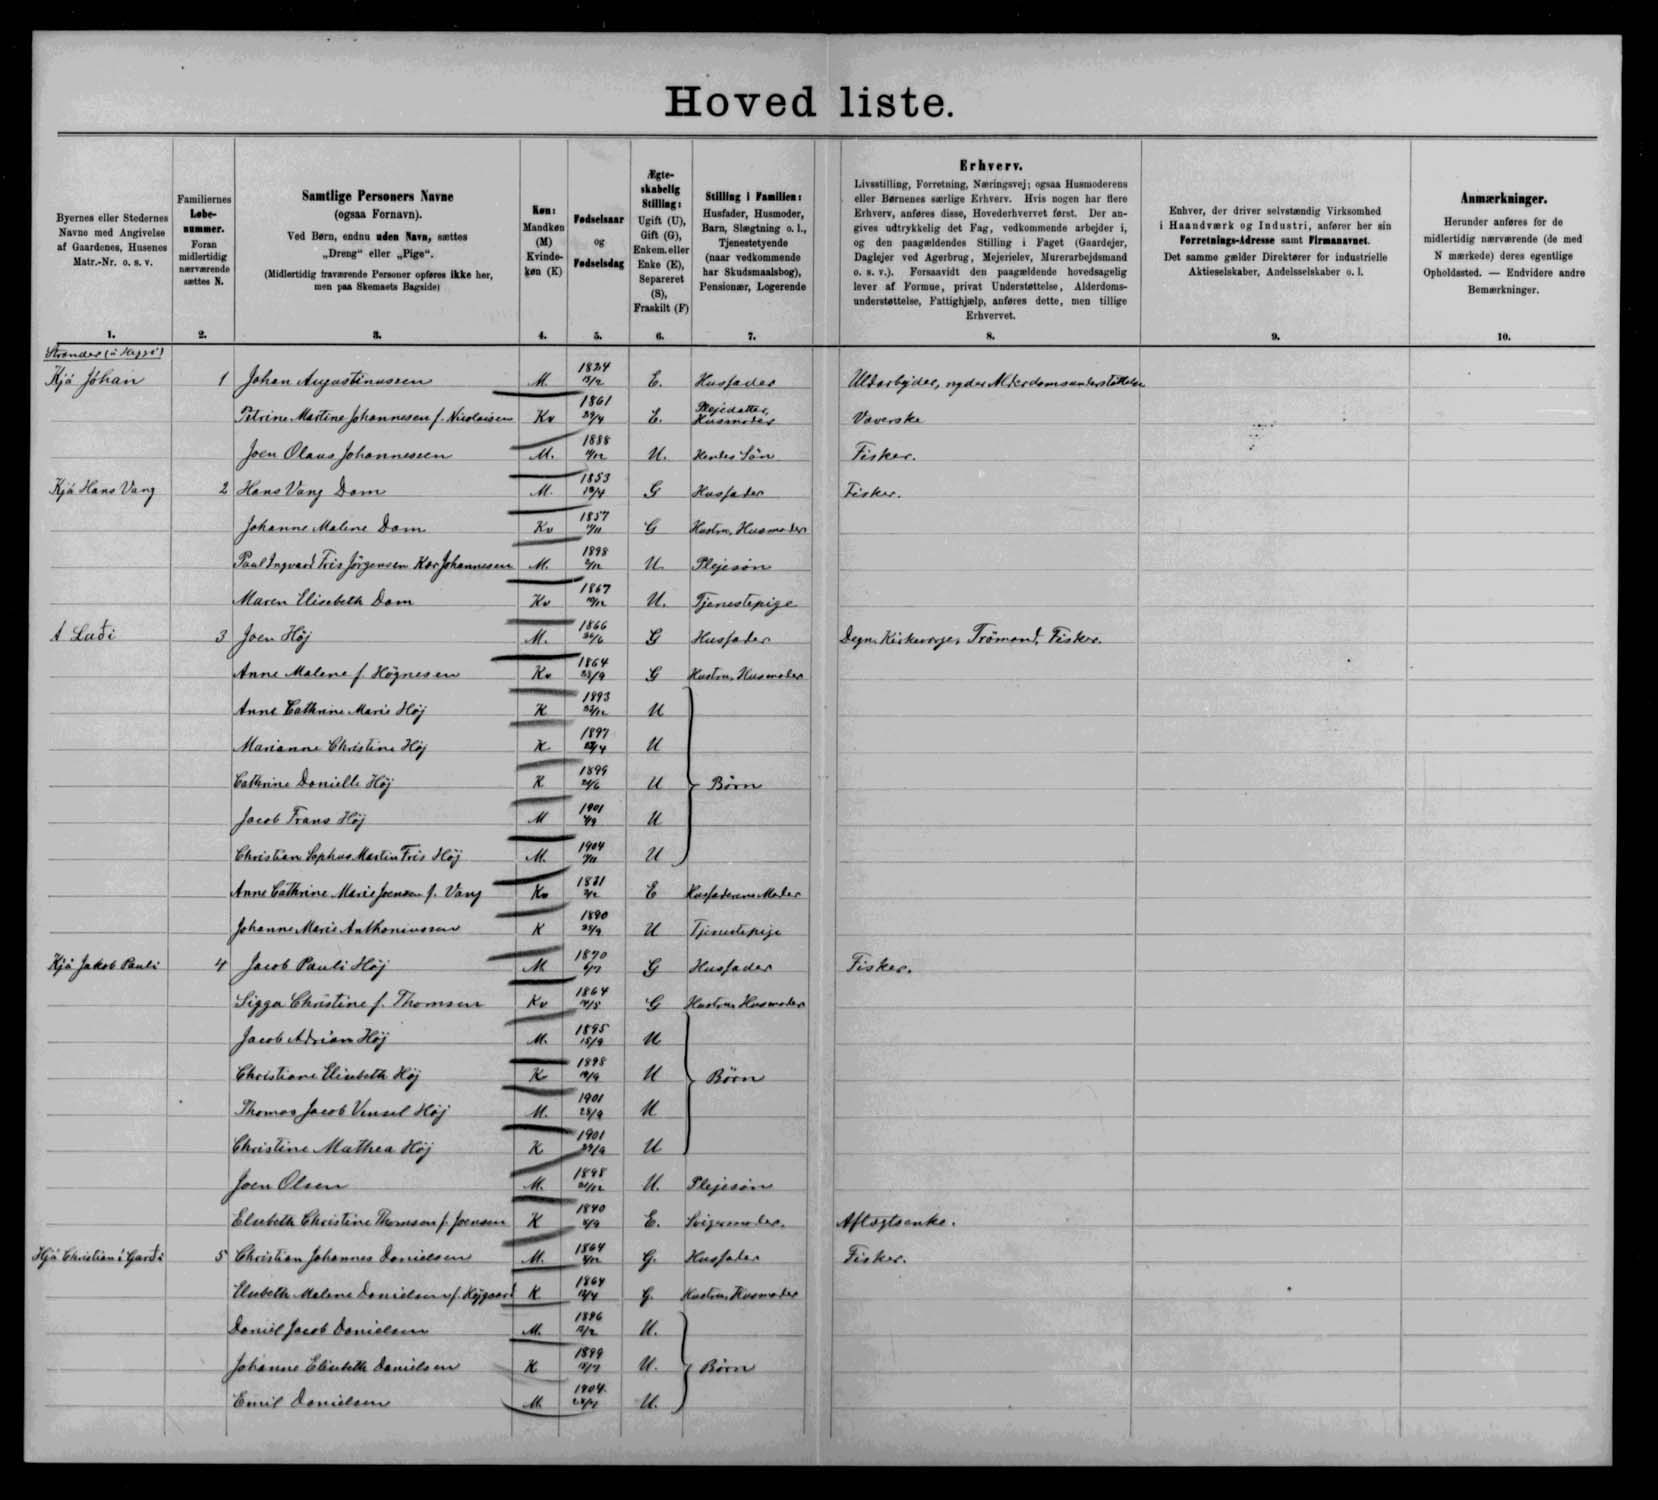 Hovedliste.
Byernes eller Stedernes Navne med Angivelse af Gaardenes, Husenes Matr.-Nr. o. s. v.
Familiernes Løbenummer. Foran midlertidig nærværende sættes N.
Samtlige Personers Navne (ogsaa Fornavn).
Ved Børn, endnu uden Navn, sættes „Dreng" eller „Pige".
(Midlertidig fraværende Personer opføres ikke her, men paa Skemaets Bagside)
Køn: Mandkøn (M) Kvindekøn (K)
Fødselsaar og Fødselsdag
Ægteskabelig Stilling: Ugift (U), Gift (G), Enkem. eller Enke (E), Separeret (S), Fraskilt (F)
Stilling i Familien: Husfader, Husmoder, Barn, Slægtning o. l., Tjenestetyende (naar vedkommende har Skudsmaalsbog), Pensionær, Logerende
Erhverv.
Livsstilling, Forretning, Næringsvej; ogsaa Husmoderens eller Børnenes særlige Erhverv. Hvis nogen har flere Erhverv, anføres disse, Hovederhvervet først. Der angives udtrykkelig det Fag, vedkommende arbejder i, og den paagældendes Stilling i Faget (Gaardejer, Daglejer ved Agerbrug, Mejerielev, Murerarbejdsmand o. s. v.). Forsaavidt den paagældende hovedsagelig lever af Formue, privat Understøttelse, Alderdomsunderstøttelse, Fattighjælp, anføres dette, men tillige Erhvervet.
Enhver, der driver selvstændig Virksomhed i Haandværk og Industri, anfører her sin Forretnings-Adresse samt Firmanavnet. Det samme gælder Direktører for industrielle Aktieselskaber, Andelsselskaber o. l.
Anmærkninger.
Herunder anføres for de midlertidig nærværende (de med N mærkede) deres egentlige Opholdssted. — Endvidere andre Bemærkninger.
1. 2. 3. 4. 5. 6. 7. 8. 9. 10.
Hjá Jóhan 1 Johan Augustinussen M. 1824 E. Husfader Uldarbejder, nyder Alderdomsunderstøttelse
Petrine Martine Johannesen f. Nicolaisen Kv 1861 29/4 E. Plejedatter, Husmoder Væverske
Joen Olaus Johannesen M. 1888 U. Hendes Søn Fisker.
Hjá Hans Vang 2 Hans Vang Dam M. 1853 G Husfader Fisker.
Johanne Malene Dam Kv 1857 G Hustru, Husmoder
Johannesen M. 1898 U Plejesøn
Maren Elisebeth Dam Kv 1867 U. Tjenestepige
3 Joen Høj M. 1866 G Husfader Degn, Kirkeværge, Fisker.
Anne Malene f. Høgnesen Kv 1864 G Hustru, Husmoder
Anne Cathrine Marie Høj K 1893 U
Marianne Christine Høj K 1897 U
Cathrine Høj K 1899 U Børn
Jacob Frans Høj M 1901 U
Christian Sophus Martin Høj M. 1904 U
Anne Cathrine Marie Joensen f. Vang Kv E Husfaderens Moder
Johanne Marie Anthoniussen K 1890 U Tjenestepige
Hjá Jákob Pauli 4 Jacob Pauli Høj M 1870 G Husfader Fisker.
Sigga Christine f. Thomsen Kv 1864 G Hustru Husmoder
Jacob Adrian Høj M. 1895 18/9 U
Christiane Elisebeth Høj K 1898 U Børn
Thomas Jacob Høj M. 1901 U
Christine Mathea Høj K 1901 U
Joen Olsen M. 1898 U. Plejesøn
Elsebeth Christine Thomsen f. Joensen K 1840 E. Svigermoder. Aftægtsenke.
Hjá Christian í Garði 5 Christian Johannes Danielsen M. 1864 G. Husfader Fisker.
Elsebeth Malene Danielsen K 1864 G. Hustru, Husmoder
Daniel Jacob Danielsen M. 1896 U.
Johanne Elisebeth Danielsen K 1899 U. Børn
Emil Danielsen M. 1904. U.